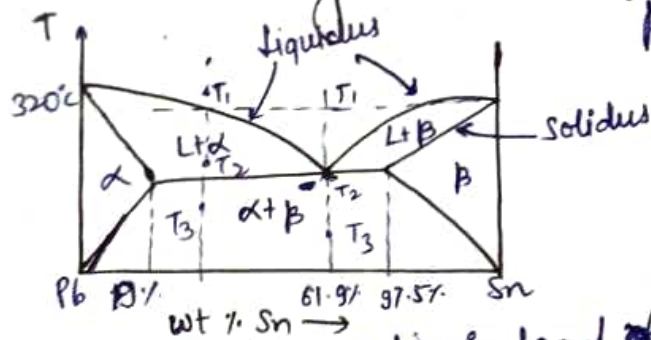 T
Liquidus
320°C
T₁
T₁
L+α
L+β
Solidus
T₂
α
T₂
β
α+β
T₃
T₃
Pb 19% 61.9% 97.5% Sn
wt % Sn →